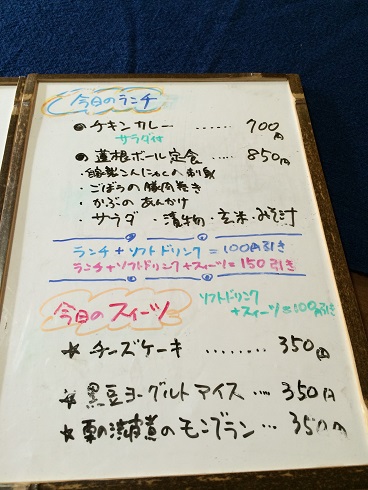 今日のランチ
● チキンカレー ……… 700円
サラダ付
● 蓮根ボール定食 …… 850円
・自家製こんにゃくの刺身
・ごぼうの豚肉巻き
・かぶのあんかけ
・サラダ・漬物・玄米・みそ汁
ランチ+ソフトドリンク=100円引き
ランチ+ソフトドリンク+スイーツ=150引き
今日のスイーツ
ソフトドリンク
+スイーツ=100引き
☆ チーズケーキ ……… 350円
☆ 黒豆ヨーグルトアイス …. 350円
☆ 栗の渋皮煮のモンブラン … 350円